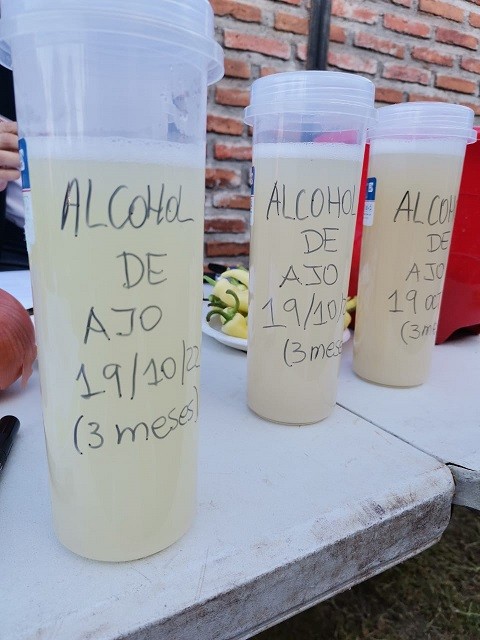 ALCOHOL
DE
AJO
19/10/22
(3 meses)
ALCOHOL
DE
AJO
19/10/
(3 meses
ALCOH
DE
AJO
19 oct
(3 m